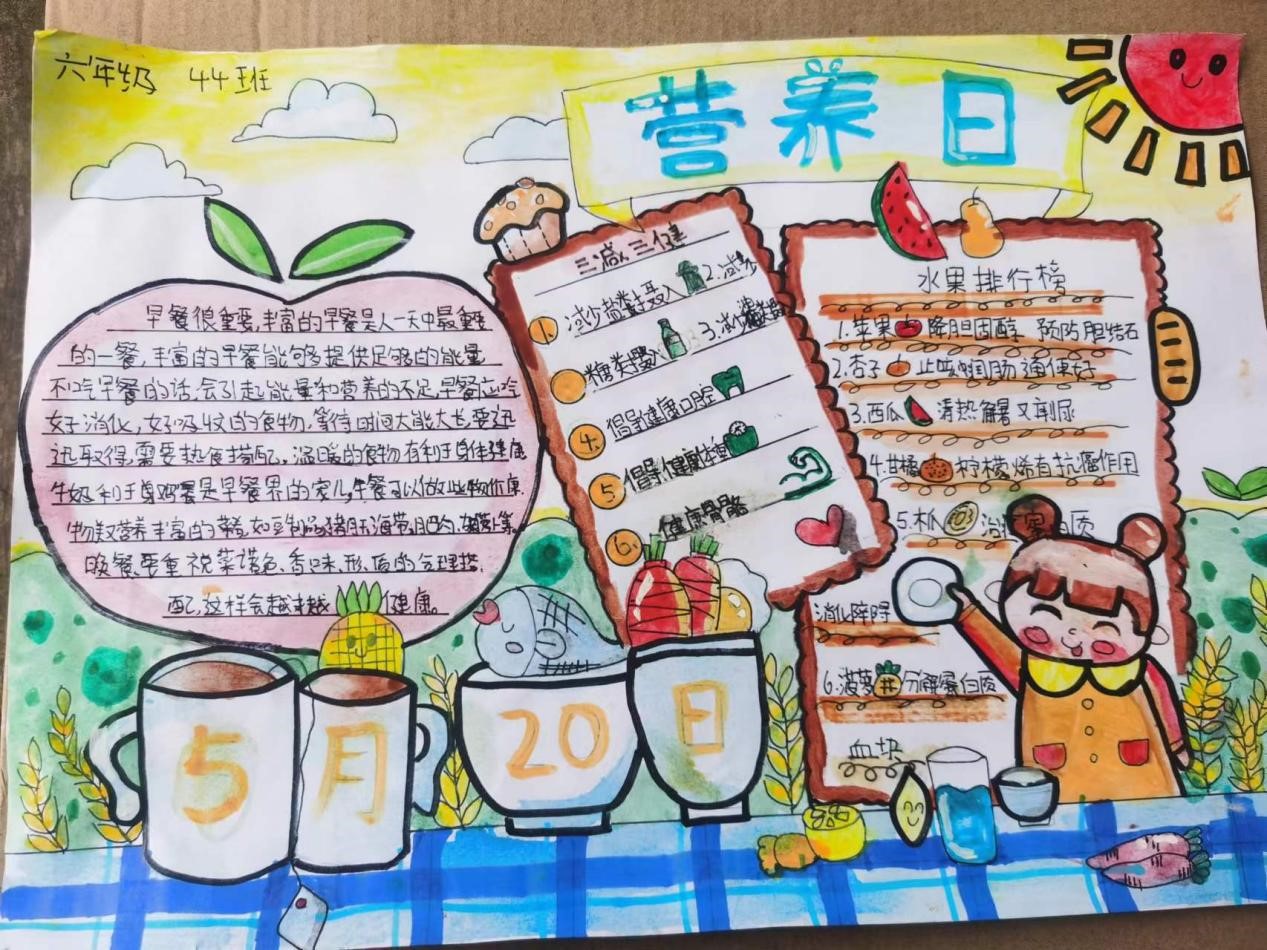 六年级 44班
营养日
早餐很重要,丰富的早餐是人一天中最重要
的一餐,丰富的早餐能够提供足够的能量
不吃早餐的话,会引起能量和营养的不足,早餐应吃
好消化,好吸收的食物,等待时间大能太长,要迅
迅取得,需要热食搭配,温暖的食物有利于身体健康
牛奶利于身鸡蛋是早餐界的家儿,午餐可以做些物价康
物美营养丰富的菜,如豆制品猪肝海带,肥肉,
晚餐要重视菜谱色、香味、形、质的合理搭
配,这样会越来越健康。
三减三健
1. 减少盐类摄入 2.减少
糖类摄入 3.减少
4. 倡导健康口腔
5. 倡导健康体重
6. 健康骨骼
水果排行榜
1.苹果 降胆固醇 预防胆结石
2.杏子 止咳润肠通便好
3.西瓜 清热解暑又利尿
4.甘橘 柠檬烯有抗癌作用
5.木瓜 治 质
消化障碍
6.菠萝 分解蛋白质
血块
5月20日